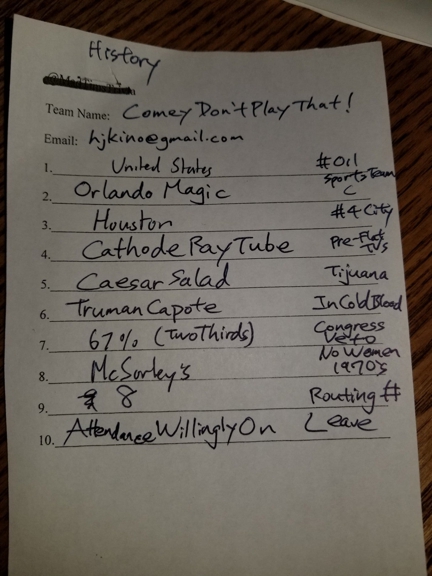 History
Team Name: Comey Don't Play That!
Email: hjkino@gmail.com
1. United States #Oil
2. Orlando Magic Sports Team C
3. Houston #4 City
4. Cathode Ray Tube Pre-Flat TVs
5. Caesar Salad Tijuana
6. Truman Capote In Cold Blood
7. 67% (Two Thirds) Congress Veto
8. McSorley's No Women 1970's
9. 8 Routing #
10. Attendance Willingly On Leave